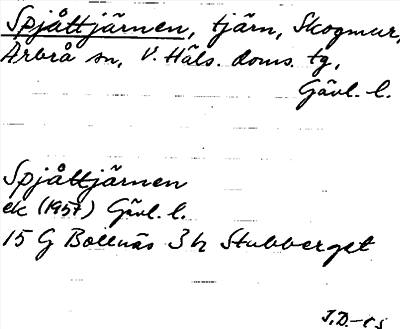 Spjåttjärnen, tjärn, Skogmur,
Arbrå sn, V. Häls. doms. tg,
Gävl. l.
Spjåttjärnen
ek (1957) Gävl. l.
15 G Bollnäs 3h Stubberget